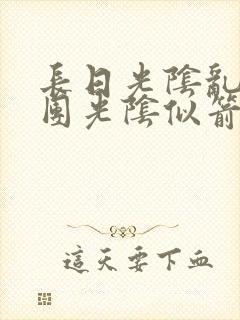 長日光陰亂
團光陰似箭
這天要下血